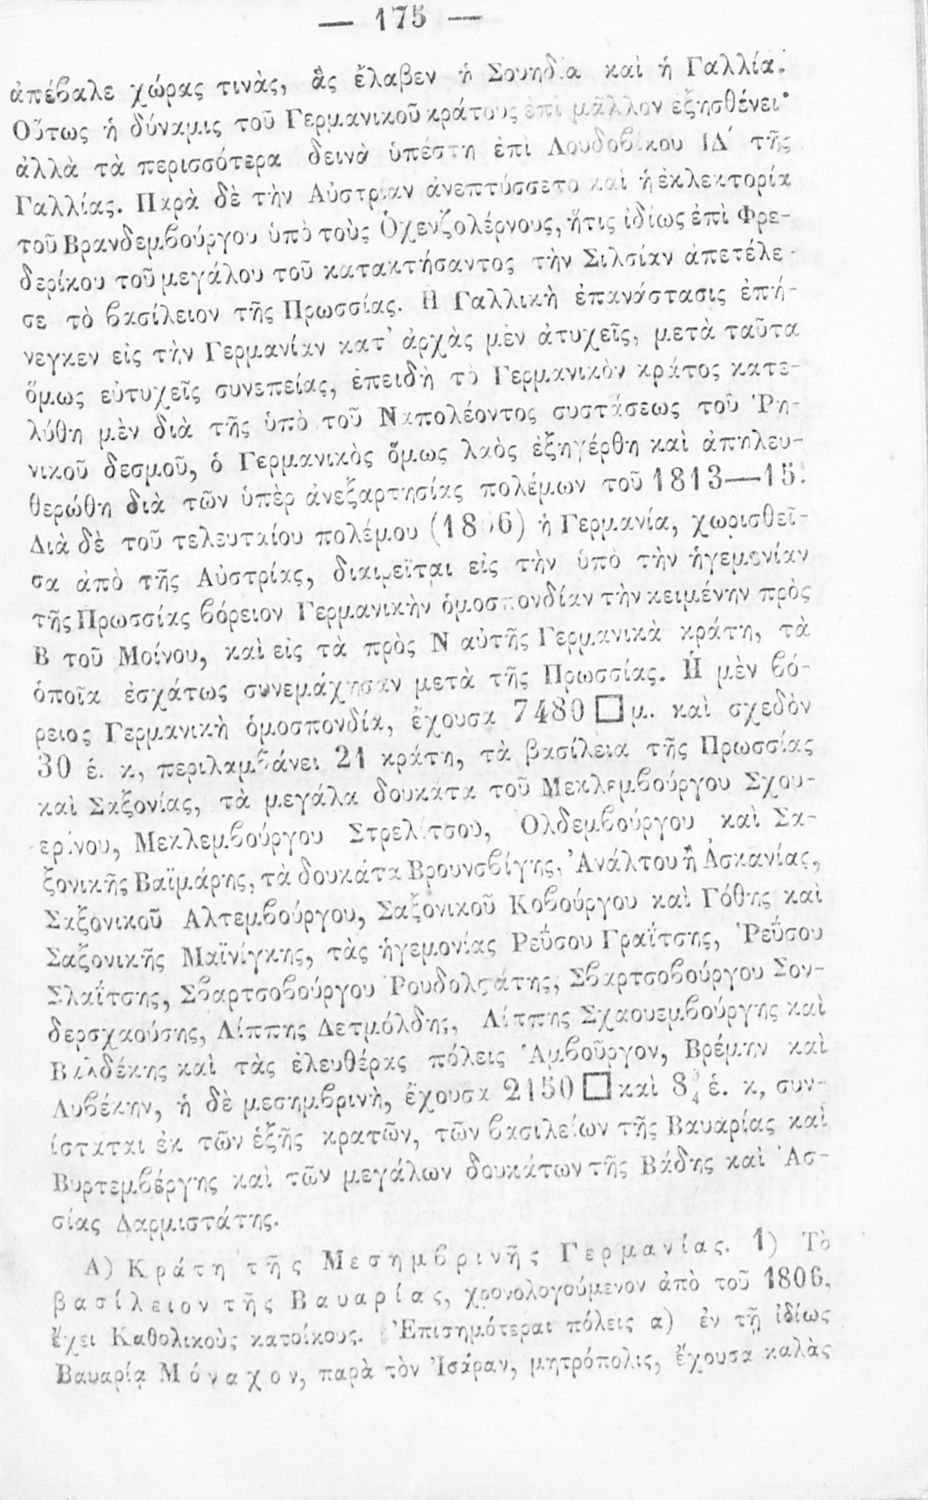 — 175 —
ἀπέβαλε χώρας τινὰς, ἃς ἔλαβεν ἡ Σουηδία καὶ ἡ Γαλλία.
Οὕτως ἡ δύναμις τοῦ Γερμανικοῦ κράτους ἐπὶ μᾶλλον ἐξησθένει·
ἀλλὰ τὰ περισσότερα δεινὰ ὑπέστη ἐπὶ Λουδοβίκου ΙΔ΄ τῆς
Γαλλίας. Παρὰ δὲ τὴν Αὐστρίαν ἀνεπτύσσετο καὶ ἡ ἐκλεκτορία
τοῦ Βρανδεμβούργου ὑπὸ τοὺς Ὁχενζολέρνους, ἥτις ἰδίως ἐπὶ Φρε-
δερίκου τοῦ μεγάλου τοῦ κατακτήσαντος τὴν Σιλσίαν ἀπετέλε-
σε τὸ βασίλειον τῆς Πρωσσίας. Ἡ Γαλλικὴ ἐπανάστασις ἐπή-
νεγκεν εἰς τὴν Γερμανίαν κατ' ἀρχὰς μὲν ἀτυχεῖς, μετὰ ταῦτα
ὅμως εὐτυχεῖς συνεπείας, ἐπειδὴ τὸ Γερμανικὸν κράτος κατε-
λύθη μὲν διὰ τῆς ὑπὸ τοῦ Ναπολέοντος συστάσεως τοῦ Ῥη-
νικοῦ δεσμοῦ, ὁ Γερμανικὸς ὅμως λαὸς ἐξηγέρθη καὶ ἀπηλευ-
θερώθη διὰ τῶν ὑπὲρ ἀνεξαρτησίας πολέμων τοῦ 1813—15.
Διὰ δὲ τοῦ τελευταίου πολέμου (1866) ἡ Γερμανία, χωρισθεῖ-
σα ἀπὸ τῆς Αὐστρίας, διαιρεῖται εἰς τὴν ὑπὸ τὴν ἡγεμονίαν
τῆς Πρωσσίας βόρειον Γερμανικὴν ὁμοσπονδίαν τὴν κειμένην πρὸς
Β τοῦ Μοίνου, καὶ εἰς τὰ πρὸς Ν αὐτῆς Γερμανικὰ κράτη, τὰ
ὁποῖα ἐσχάτως συνεμάχησαν μετὰ τῆς Πρωσσίας. Ἡ μὲν βό-
ρειος Γερμανικὴ ὁμοσπονδία, ἔχουσα 7480 □ μ. καὶ σχεδὸν
30 ἑ. κ, περιλαμβάνει 21 κράτη, τὰ βασίλεια τῆς Πρωσσίας
καὶ Σαξονίας, τὰ μεγάλα δουκάτα τοῦ Μεκλεμβούργου Σχου-
ερίνου, Μεκλεμβούργου Στρελίτσου, Ὀλδεμβούργου καὶ Σα-
ξονικῆς Βαϊμάρης, τὰ δουκάτα Βρουνσβίγης, Ἀνάλτου ἢ Ἀσκανίας,
Σαξονικοῦ Αλτεμβούργου, Σαξονικοῦ Κοβούργου καὶ Γόθης καὶ
Σαξονικῆς Μαϊνίγκης, τὰς ἡγεμονίας Ρεΰσου Γραΐτσης, Ῥεΰσου
Σλαΐτσης, Σβαρτσοβούργου Ῥουδολστάτης, Σβαρτσοβούργου Σον-
δερσχαούσης, Λίππης Δετμόλδης, Λίππης Σχαουεμβούργης καὶ
Βαλδέκης καὶ τὰς ἐλευθέρας πόλεις Ἁμβοῦργον, Βρέμην καὶ
Λυβέκην, ἡ δὲ μεσημβρινὴ, ἔχουσα 2150 □ καὶ 8¾ ἑ. κ, συν-
ίσταται ἐκ τῶν ἑξῆς κρατῶν, τῶν βασιλείων τῆς Βαυαρίας καὶ
Βυρτεμβέργης καὶ τῶν μεγάλων δουκάτων τῆς Βάδης καὶ Ἁσ-
σίας Δαρμιστάτης.
Α) Κράτη τῆς Μεσημβρινῆς Γερμανίας. 1) Τὸ
βασίλειον τῆς Βαυαρίας, χρονολογούμενον ἀπὸ τοῦ 1806,
ἔχει Καθολικοὺς κατοίκους. Ἐπισημότεραι πόλεις α) ἐν τῇ ἰδίως
Βαυαρίᾳ Μόναχον, παρὰ τὸν Ἰσάραν, μητρόπολις, ἔχουσα καλὰς